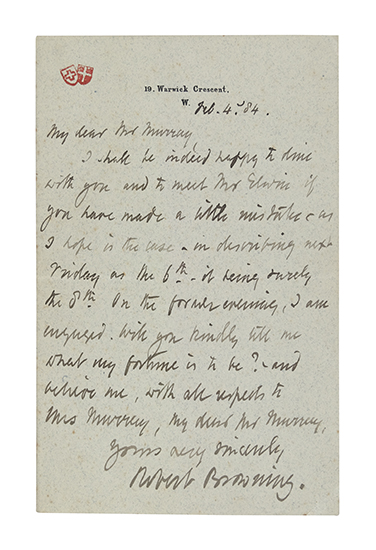 19, Warwick Crescent,
W.
Feb. 4. 84.
My dear Mr Murray,
I shall be indeed happy to dine
with you and to meet Mr Elwin if
you have made a little mistake - as
I hope is the case - in describing next
Friday as the 6th - it being surely
the 8th. On the former evening, I am
engaged. Will you kindly tell me
what my fortune is to be? - and
believe me, with all respects to
Mrs Murray, my dear Mr Murray,
Yours very sincerely
Robert Browning.